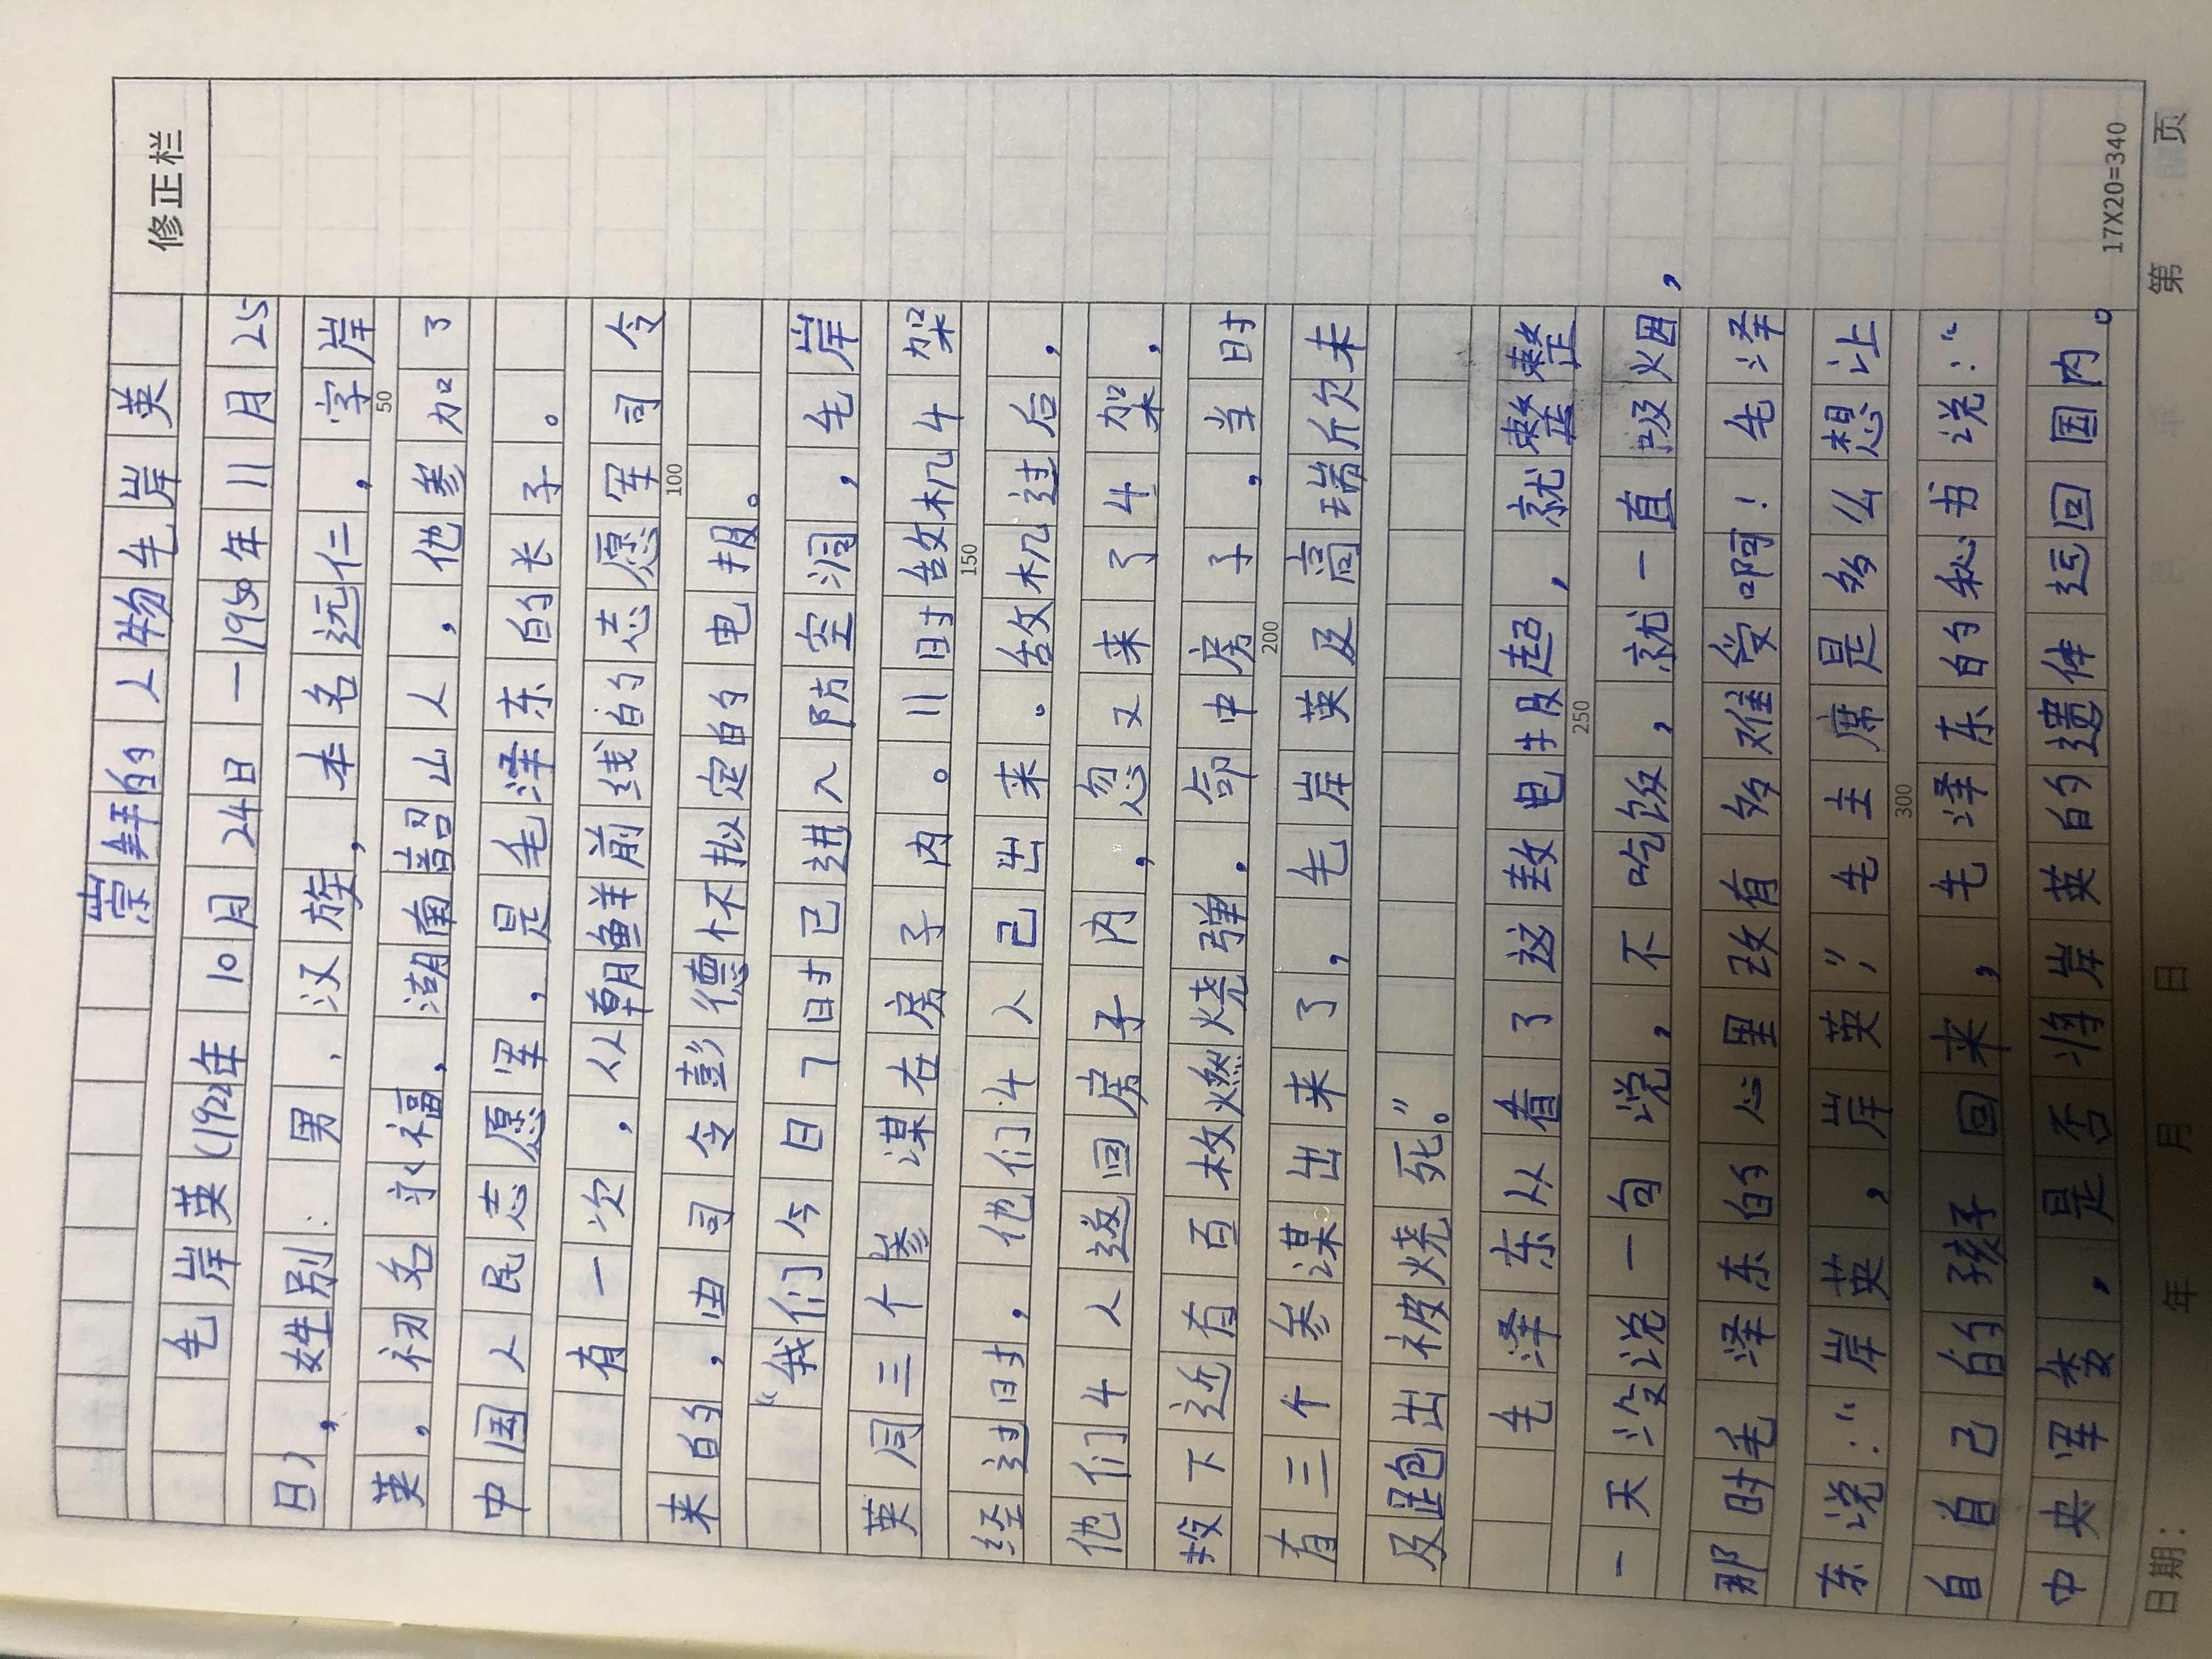 崇拜的人物毛岸英
修正栏
毛岸英(1922年10月24日—1950年11月25
日),姓别:男,汉族,本名远仁,字岸
英,初名永福,湖南韶山人,他参加了
中国人民志愿军,是毛泽东的长子。
有一次,从朝鲜前线的志愿军司令
来的,由司令彭德怀拟定的电报。
“我们今日7时已进入防空洞,毛岸
英同三个参谋在房子内。11时敌机4架
经过时,他们4人已出来。敌机过后,
他们4人返回房子内,忽又来了4架,
投下近百枚燃烧弹,命中房子,当时
有三个参谋出来了,毛岸英及高瑞欣未
及跑出被烧死。”
毛泽东从看了这封电报起,就整整
一天没说一句说,不吃饭,就一直吸烟,
那时毛泽东的心里改有多难受啊!毛泽
东说:“岸英,岸英”,毛主席是多么想让
自自己的孩子回来,毛泽东的秘书说:“
中央军委,是否将岸英的遗体运回国内。
50
100
150
200
250
300
17X20=340
日期: 年 月 日 第 页